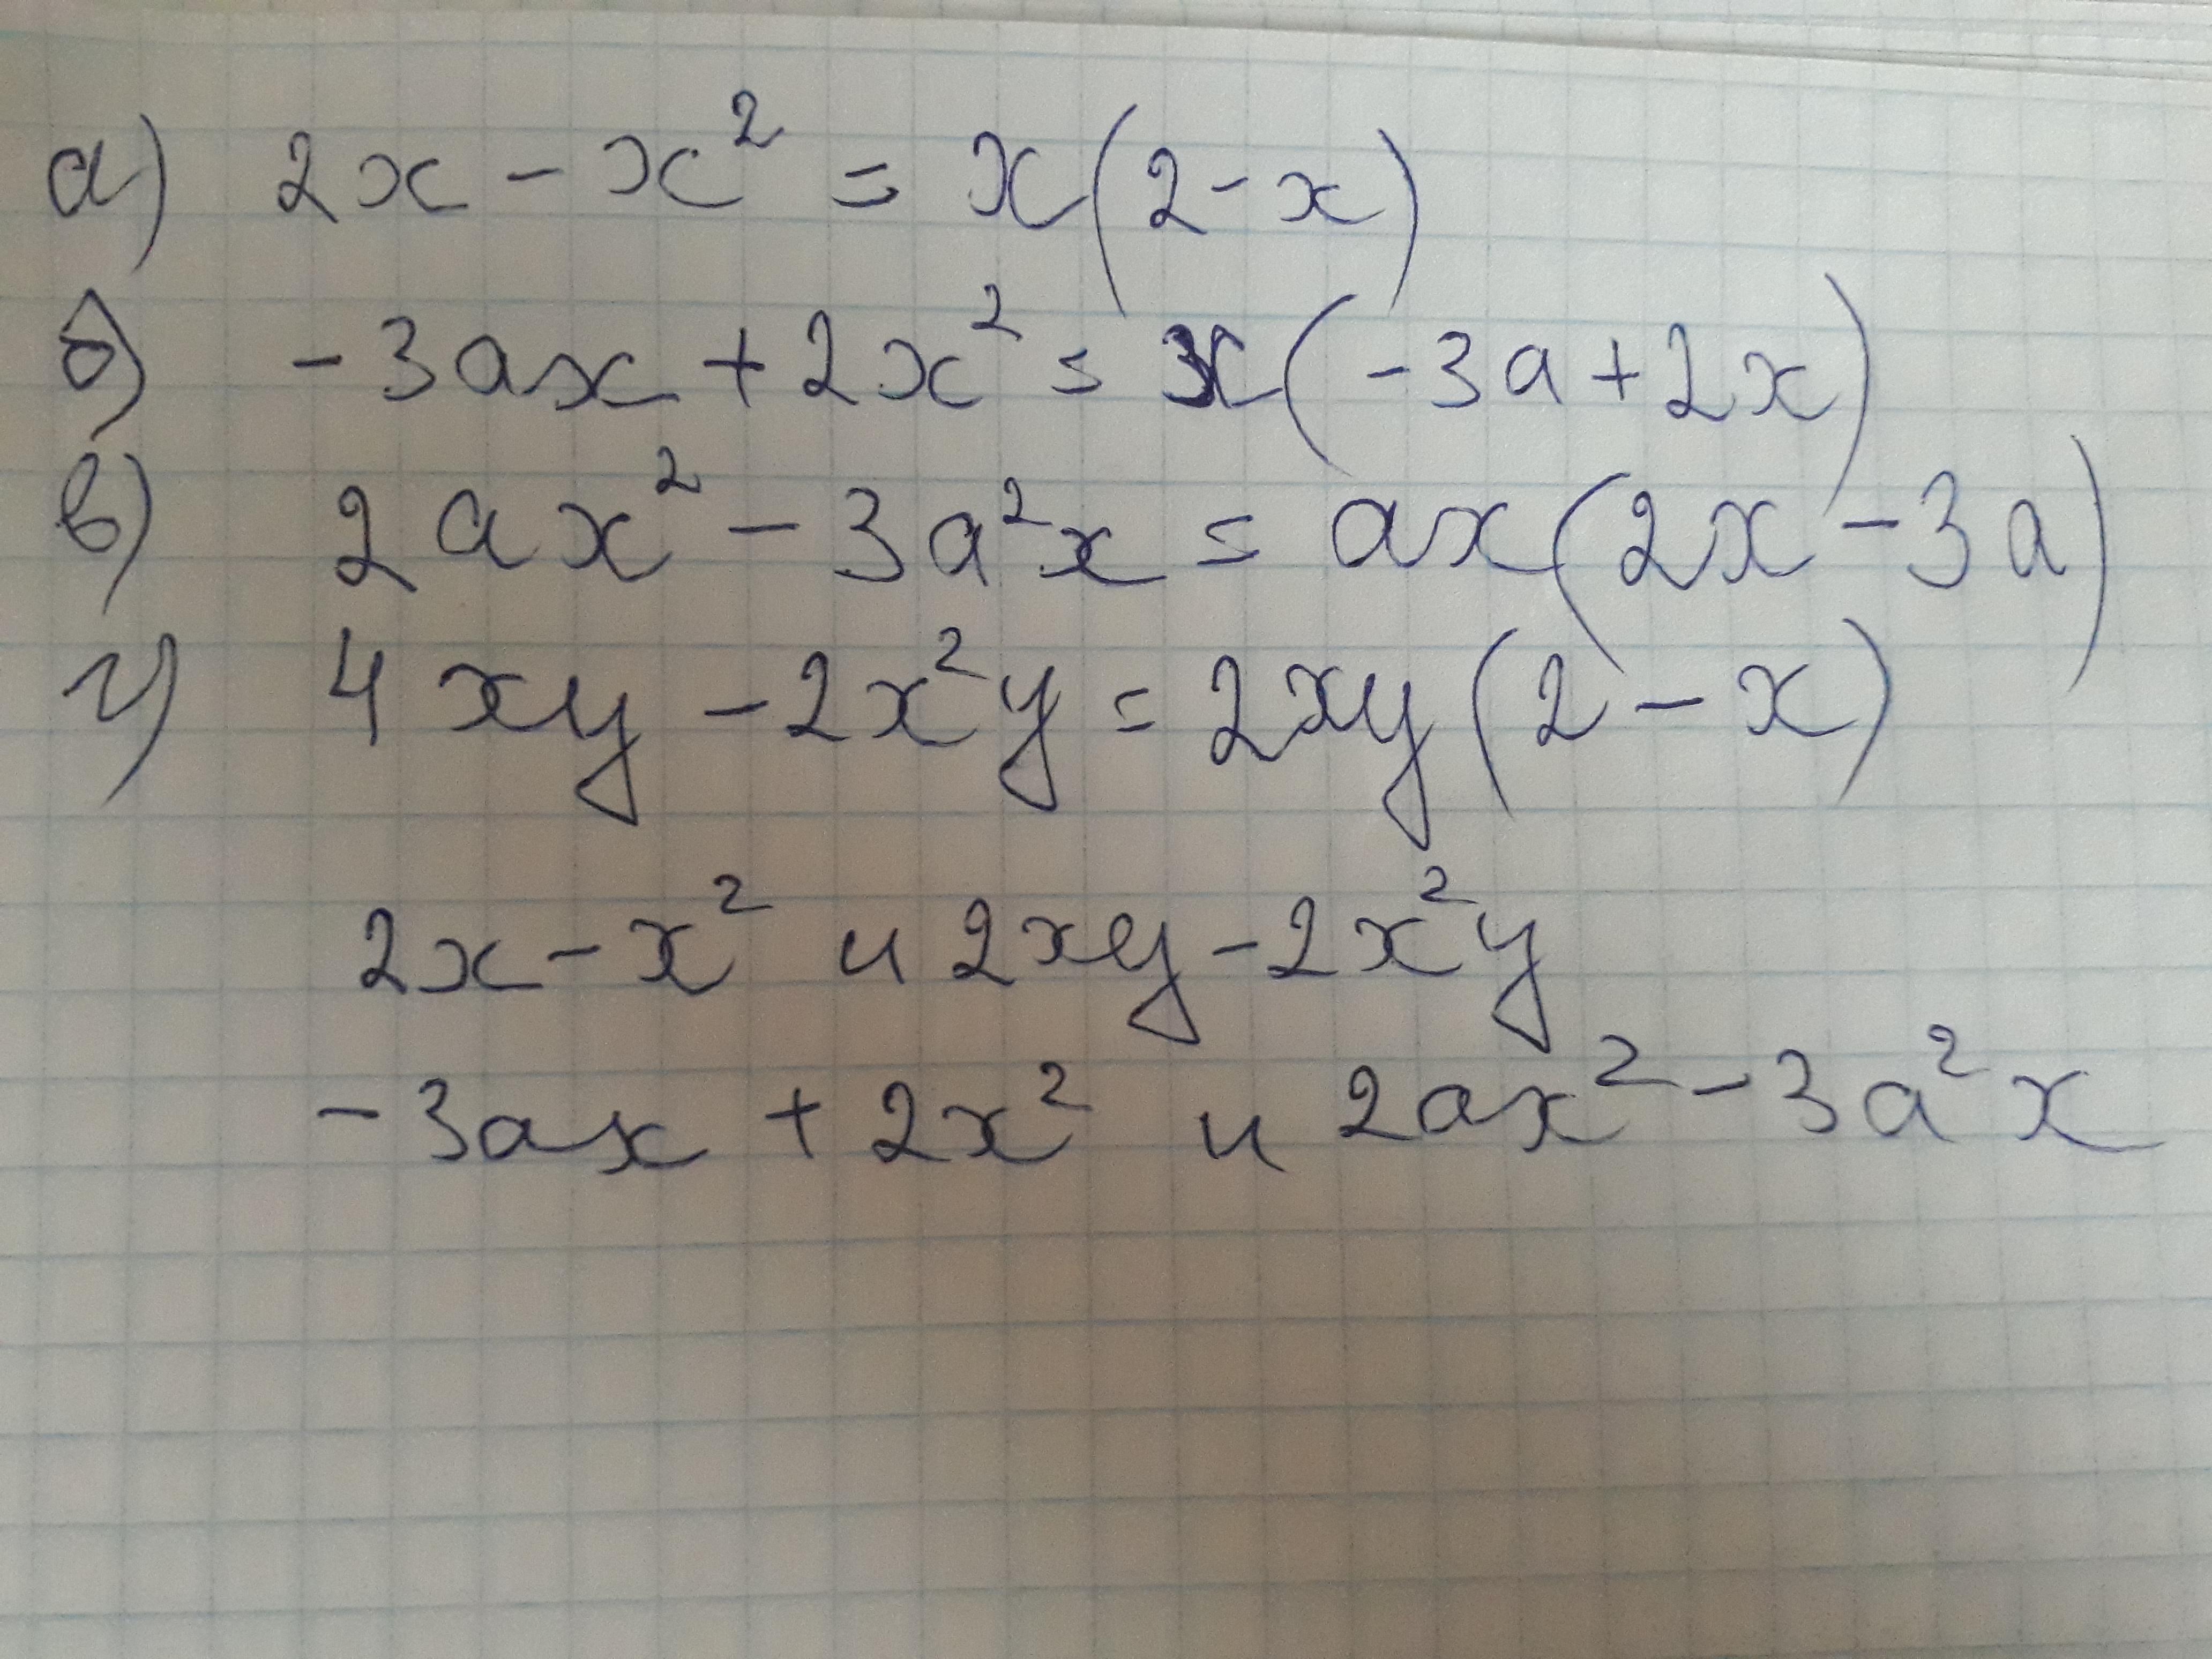 а) 2x - x² = x(2-x)
б) -3ax + 2x² = x(-3a+2x)
в) 2ax² - 3a²x = ax(2x-3a)
г) 4xy - 2x²y = 2xy(2-x)
2x - x² и 2xy - 2x²y
-3ax + 2x² и 2ax² - 3a²x